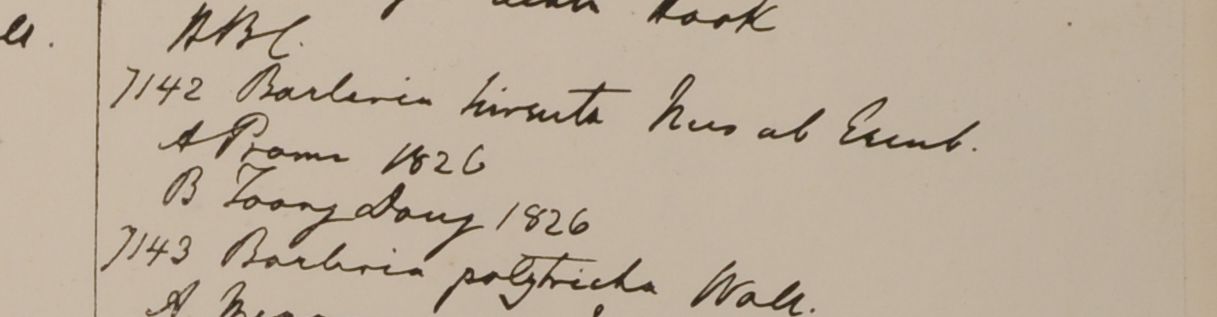 Hook
ABC.
7142 Barleria hirsuta Nees ab Esenb.
A Prome 1826
B Toong Dong 1826
7143 Barleria polytricha Wall.
A